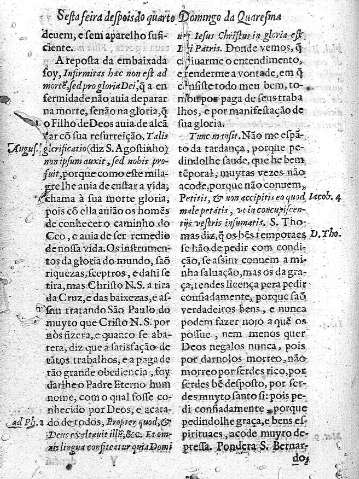 Sesta feira despois do quarto Domingo da Quaresma
deuem, e sem aparelho sufi-
ciente.
A reposta da embaixada
foy, Infirmitas hæc non est ad
mortē, sed pro gloria Dei, q̃ a en-
fermidade não auia de parar
na morte, senão na gloria, q̃
o Filho de Deos auia de alcã-
çar cõ sua resurreição. Talis
August.
glorificatio (diz S. Agostinho)
non ipsum auxit, sed nobis pro-
fuit, porque como este mila-
gre lhe auia de custar a vida,
chama à sua morte gloria,
pois cõ ella auião os homẽs
de conhecer o caminho do
Ceo, e auia de ser remedio
de nossa vida. Os instrumen-
tos da gloria do mundo, saõ
riquezas, sceptros, e dahi se
tira, mas Christo N. S. a tira
da Cruz, e das baixezas, e as-
sim tratando São Paulo do
muyto que Christo N. S. por
nòs fizera, e quanto se aba-
tera, diz que a satisfação de
tãtos trabalhos, e a paga de
tão grande obediencia, foy
darlhe o Padre Eterno hum
nome, com o qual fosse co-
nhecido por Deos, e acata-
ad Ph. 2
do de todos, Propter quod, &
Deus exaltauit illũ, &c. Et om-
nis lingua confiteatur quia Domi
nus Iesus Christus in gloria est
Dei Patris. Donde vemos, q̃
catiuarme o entendimento,
e renderme a vontade, em q̃
consiste todo meu bem, to-
mou por paga de seus traba-
lhos, e por manifestação de
sua gloria.
Tunc mansit. Não me espã-
to da tardança, porque pe-
dindolhe saude, que he bem
tẽporal, muytas vezes não
acode, porque não conuem,
Iacob. 4
Petitis, & non accipitis eo quod
male petatis, vt in concupiscen-
tijs vestris insumatis. S. Tho-
D. Tho.
mas diz, q̃ os bẽs temporaes
se hão de pedir com condi-
ção, se assim conuem a mi-
nha saluação, mas os da gra-
ça, tendes licença pera pedir
confiadamente, porque saõ
verdadeiros bens, e nunca
podem fazer nojo a quẽ os
possue, nem menos quer
Deos negalos nunca, pois
por darnolos morreo, não
morreo por serdes rico, por
serdes bẽ desposto, por ser-
des muyto santo si: pois pe-
di confiadamente, porque
pedindolhe graça, e bens es-
pirituaes, acode muyto de-
pressa. Pondera S. Bernar-
do,